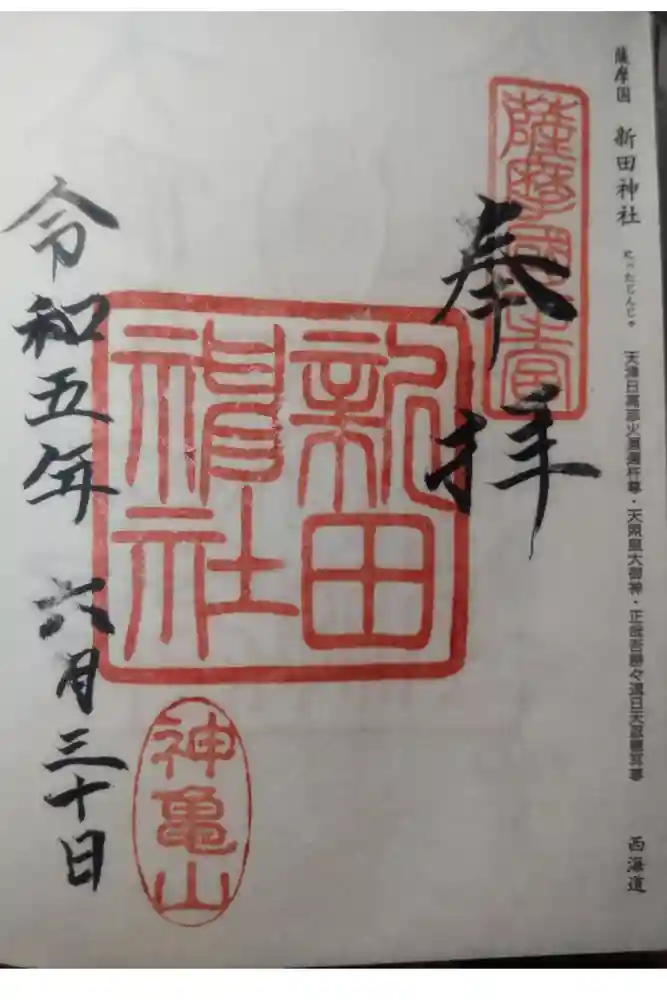 薩摩國 新田神社 にったじんじゃ 天津日高彦火瓊瓊杵尊・天照皇大御神・正哉吾勝々速日天忍穂耳尊 西海道
薩摩國一宮
奉拝
新田
神社
神亀山
令和五年 六月三十日